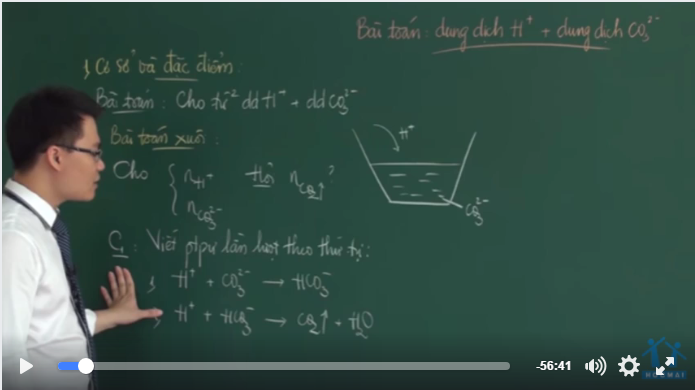 Bài toán: dung dịch H⁺ + dung dịch CO₃²⁻
1, Cơ sở và đặc điểm:
Bài toán: Cho từ² dd H⁺ + dd CO₃²⁻
Bài toán xuôi:
Cho { n_H⁺ Hỏi n_CO₂↑?
n_CO₃²⁻
H⁺
CO₃²⁻
C₁: Viết ptpư lần lượt theo thứ tự:
1, H⁺ + CO₃²⁻ → HCO₃⁻
H⁺ + HCO₃⁻ → CO₂↑ + H₂O
-56:41